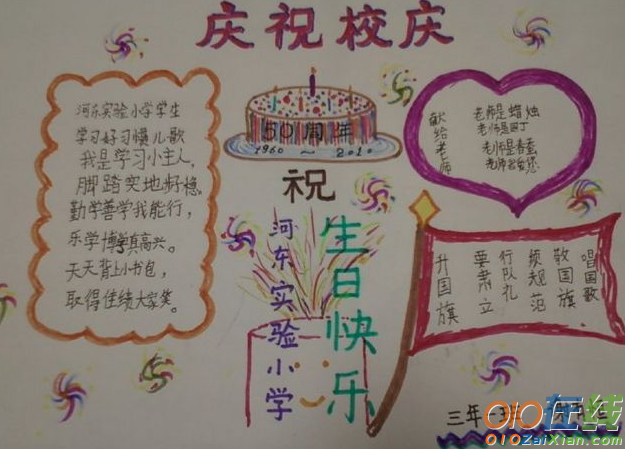 庆祝校庆
河东实验小学学生
学习好习惯儿歌
我是学习小主人，
脚踏实地好稳
勤学善学我能行，
乐学博学真高兴。
天天背上小书包，
取得佳绩大家笑。
50周年
1960 ~ 2010
祝
河东实验小学
生日快乐
献给老师
老师是蜡烛
老师是园丁
老师是春蚕
升国旗
要肃立
行队礼
须规范
敬国旗
唱国歌
三年一班
010在线
010ZaiXian.com